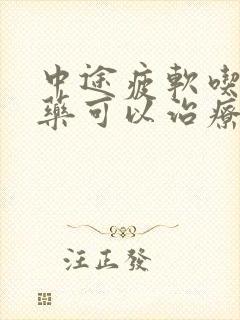 中途疲軟喫
藥可以治療
汪正發